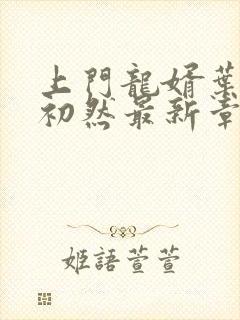 上門龍婿葉
初然最新章
姬語萱萱